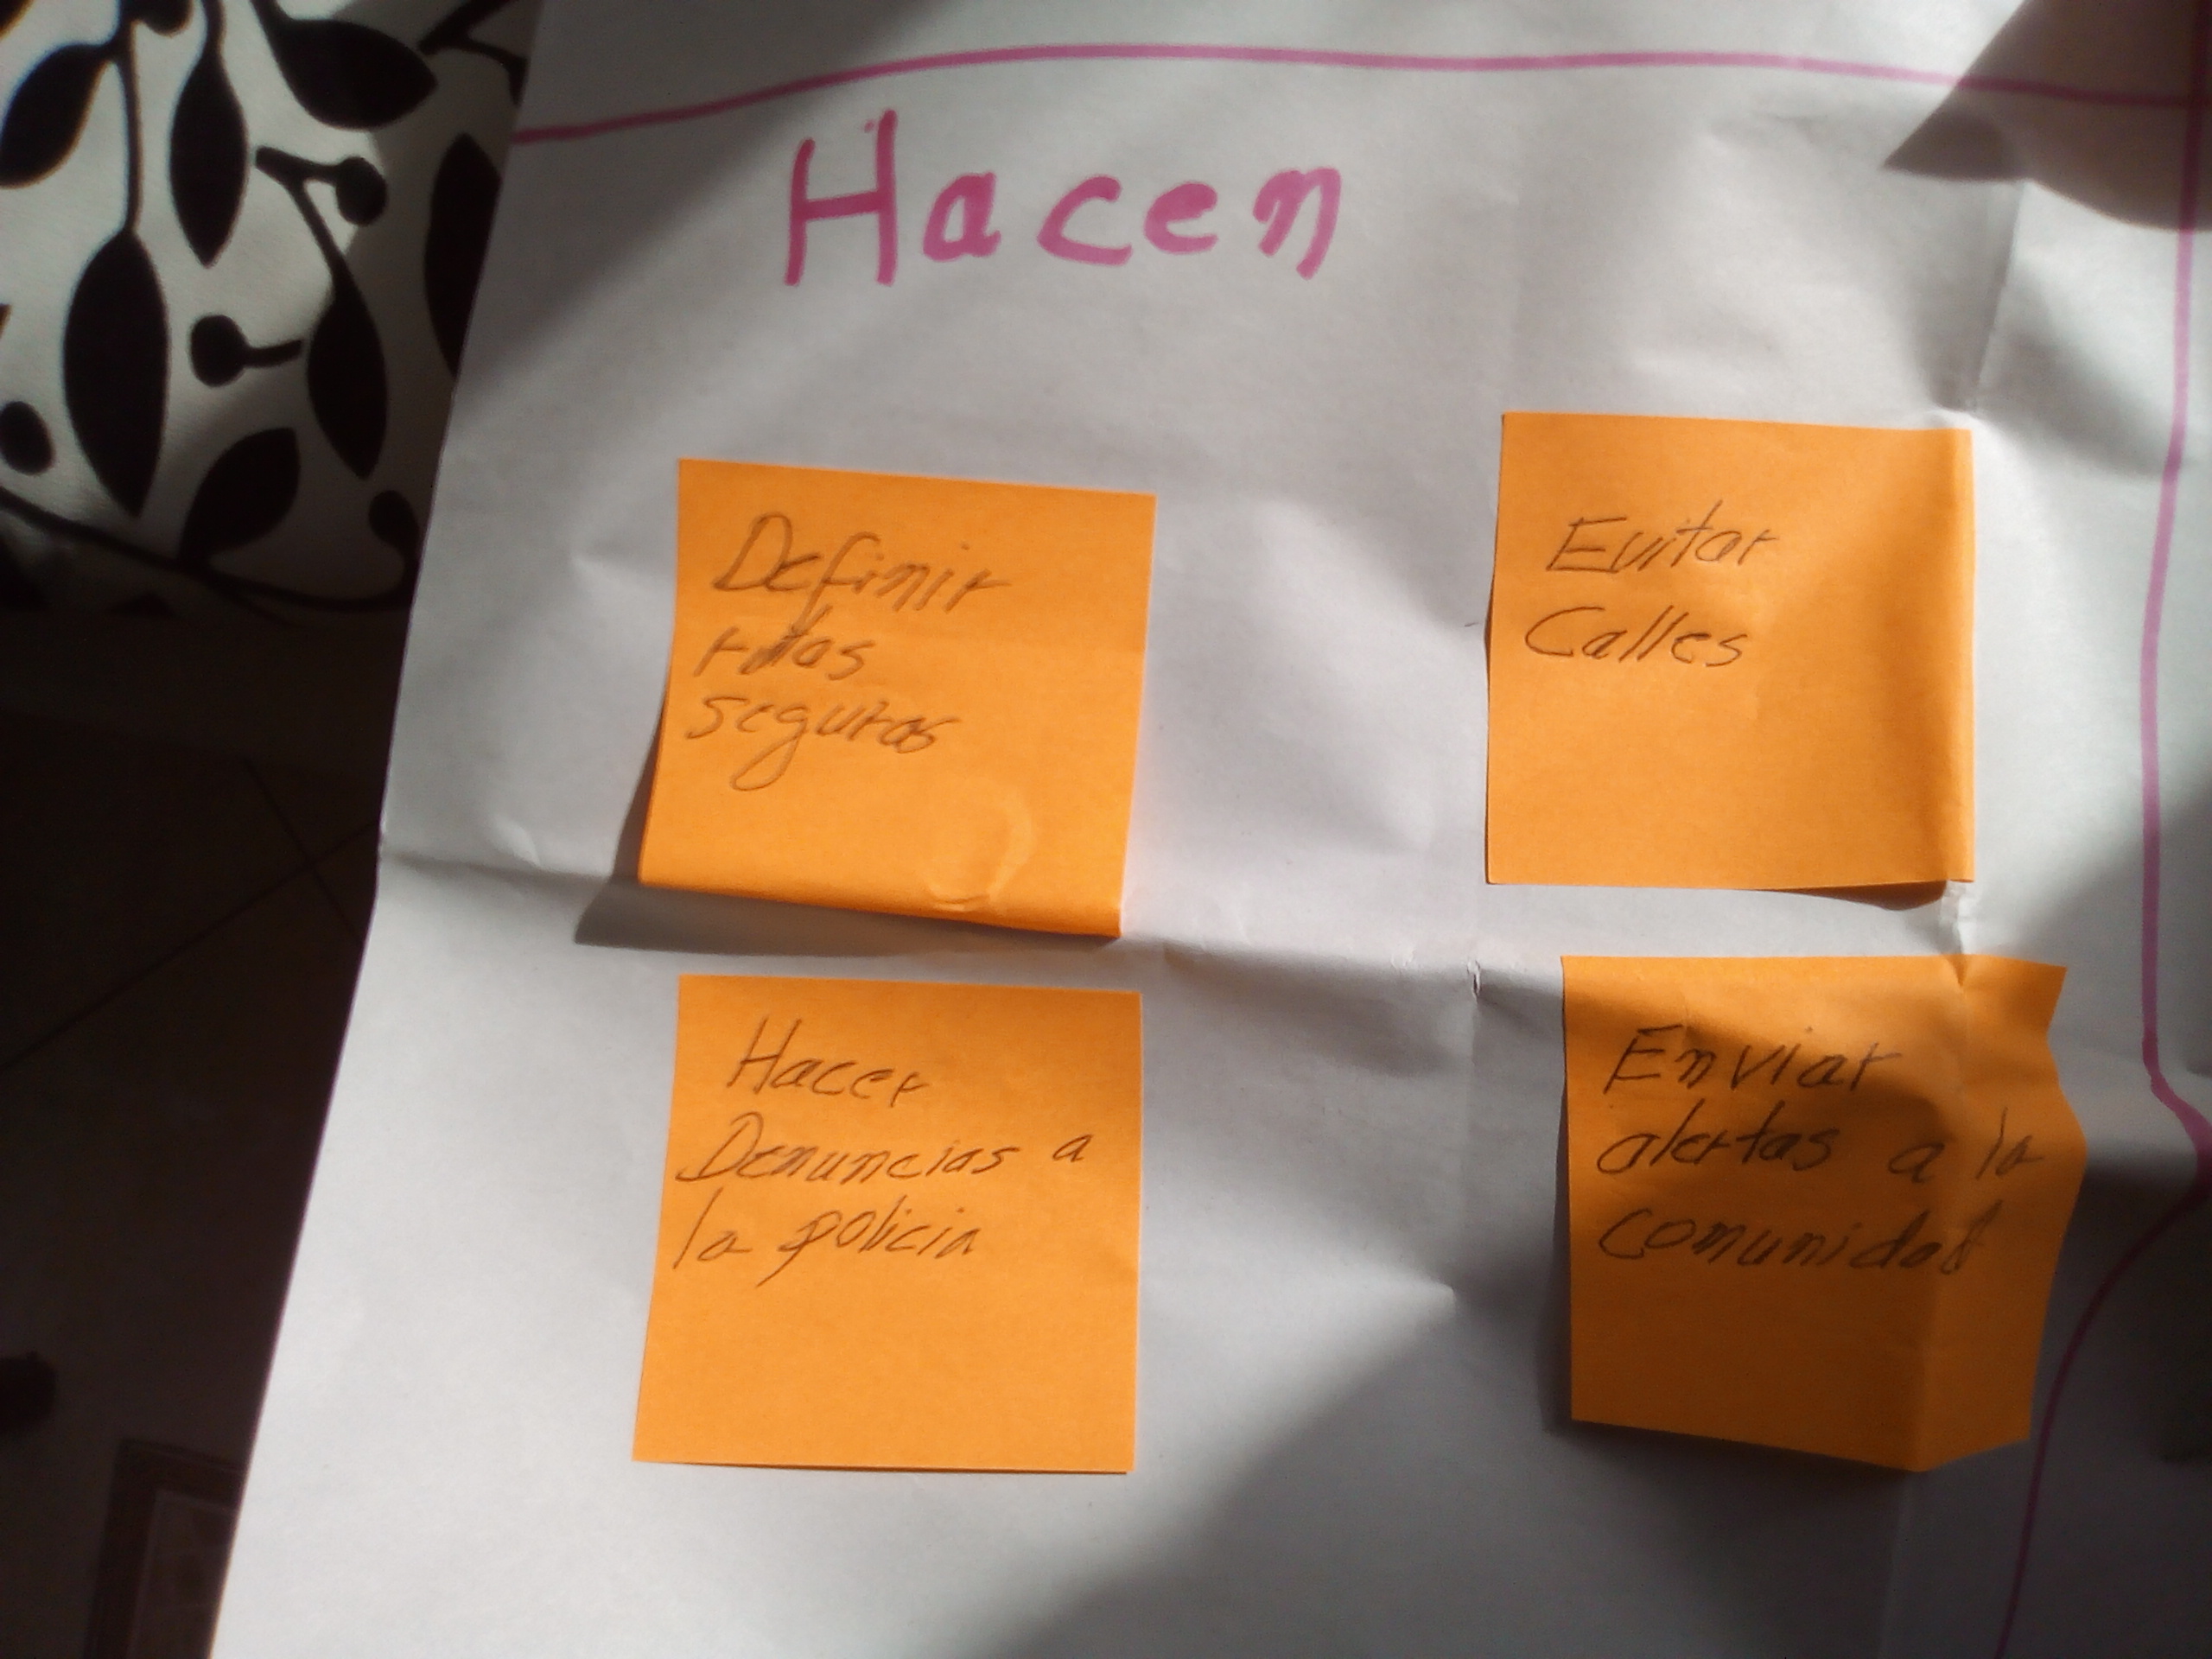 Hacen
Definir
rutas
seguras
Evitar
Calles
Hacer
Denuncias a
la policia
Enviar
alertas a la
comunidad